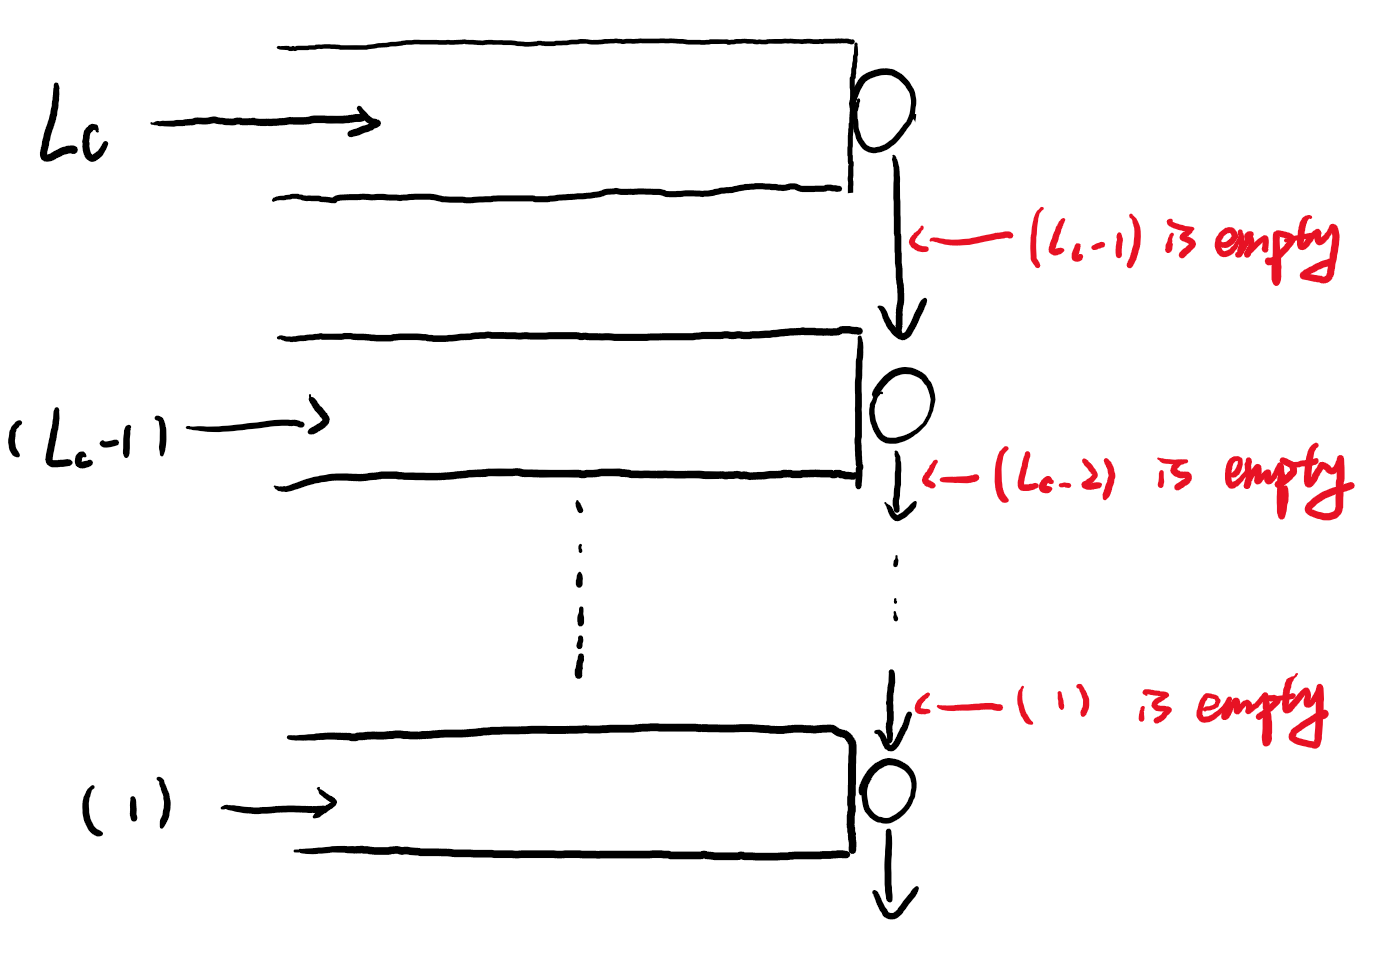 Lc
(Lc-1) is empty
(Lc-1)
(Lc-2) is empty
(1) is empty
(1)